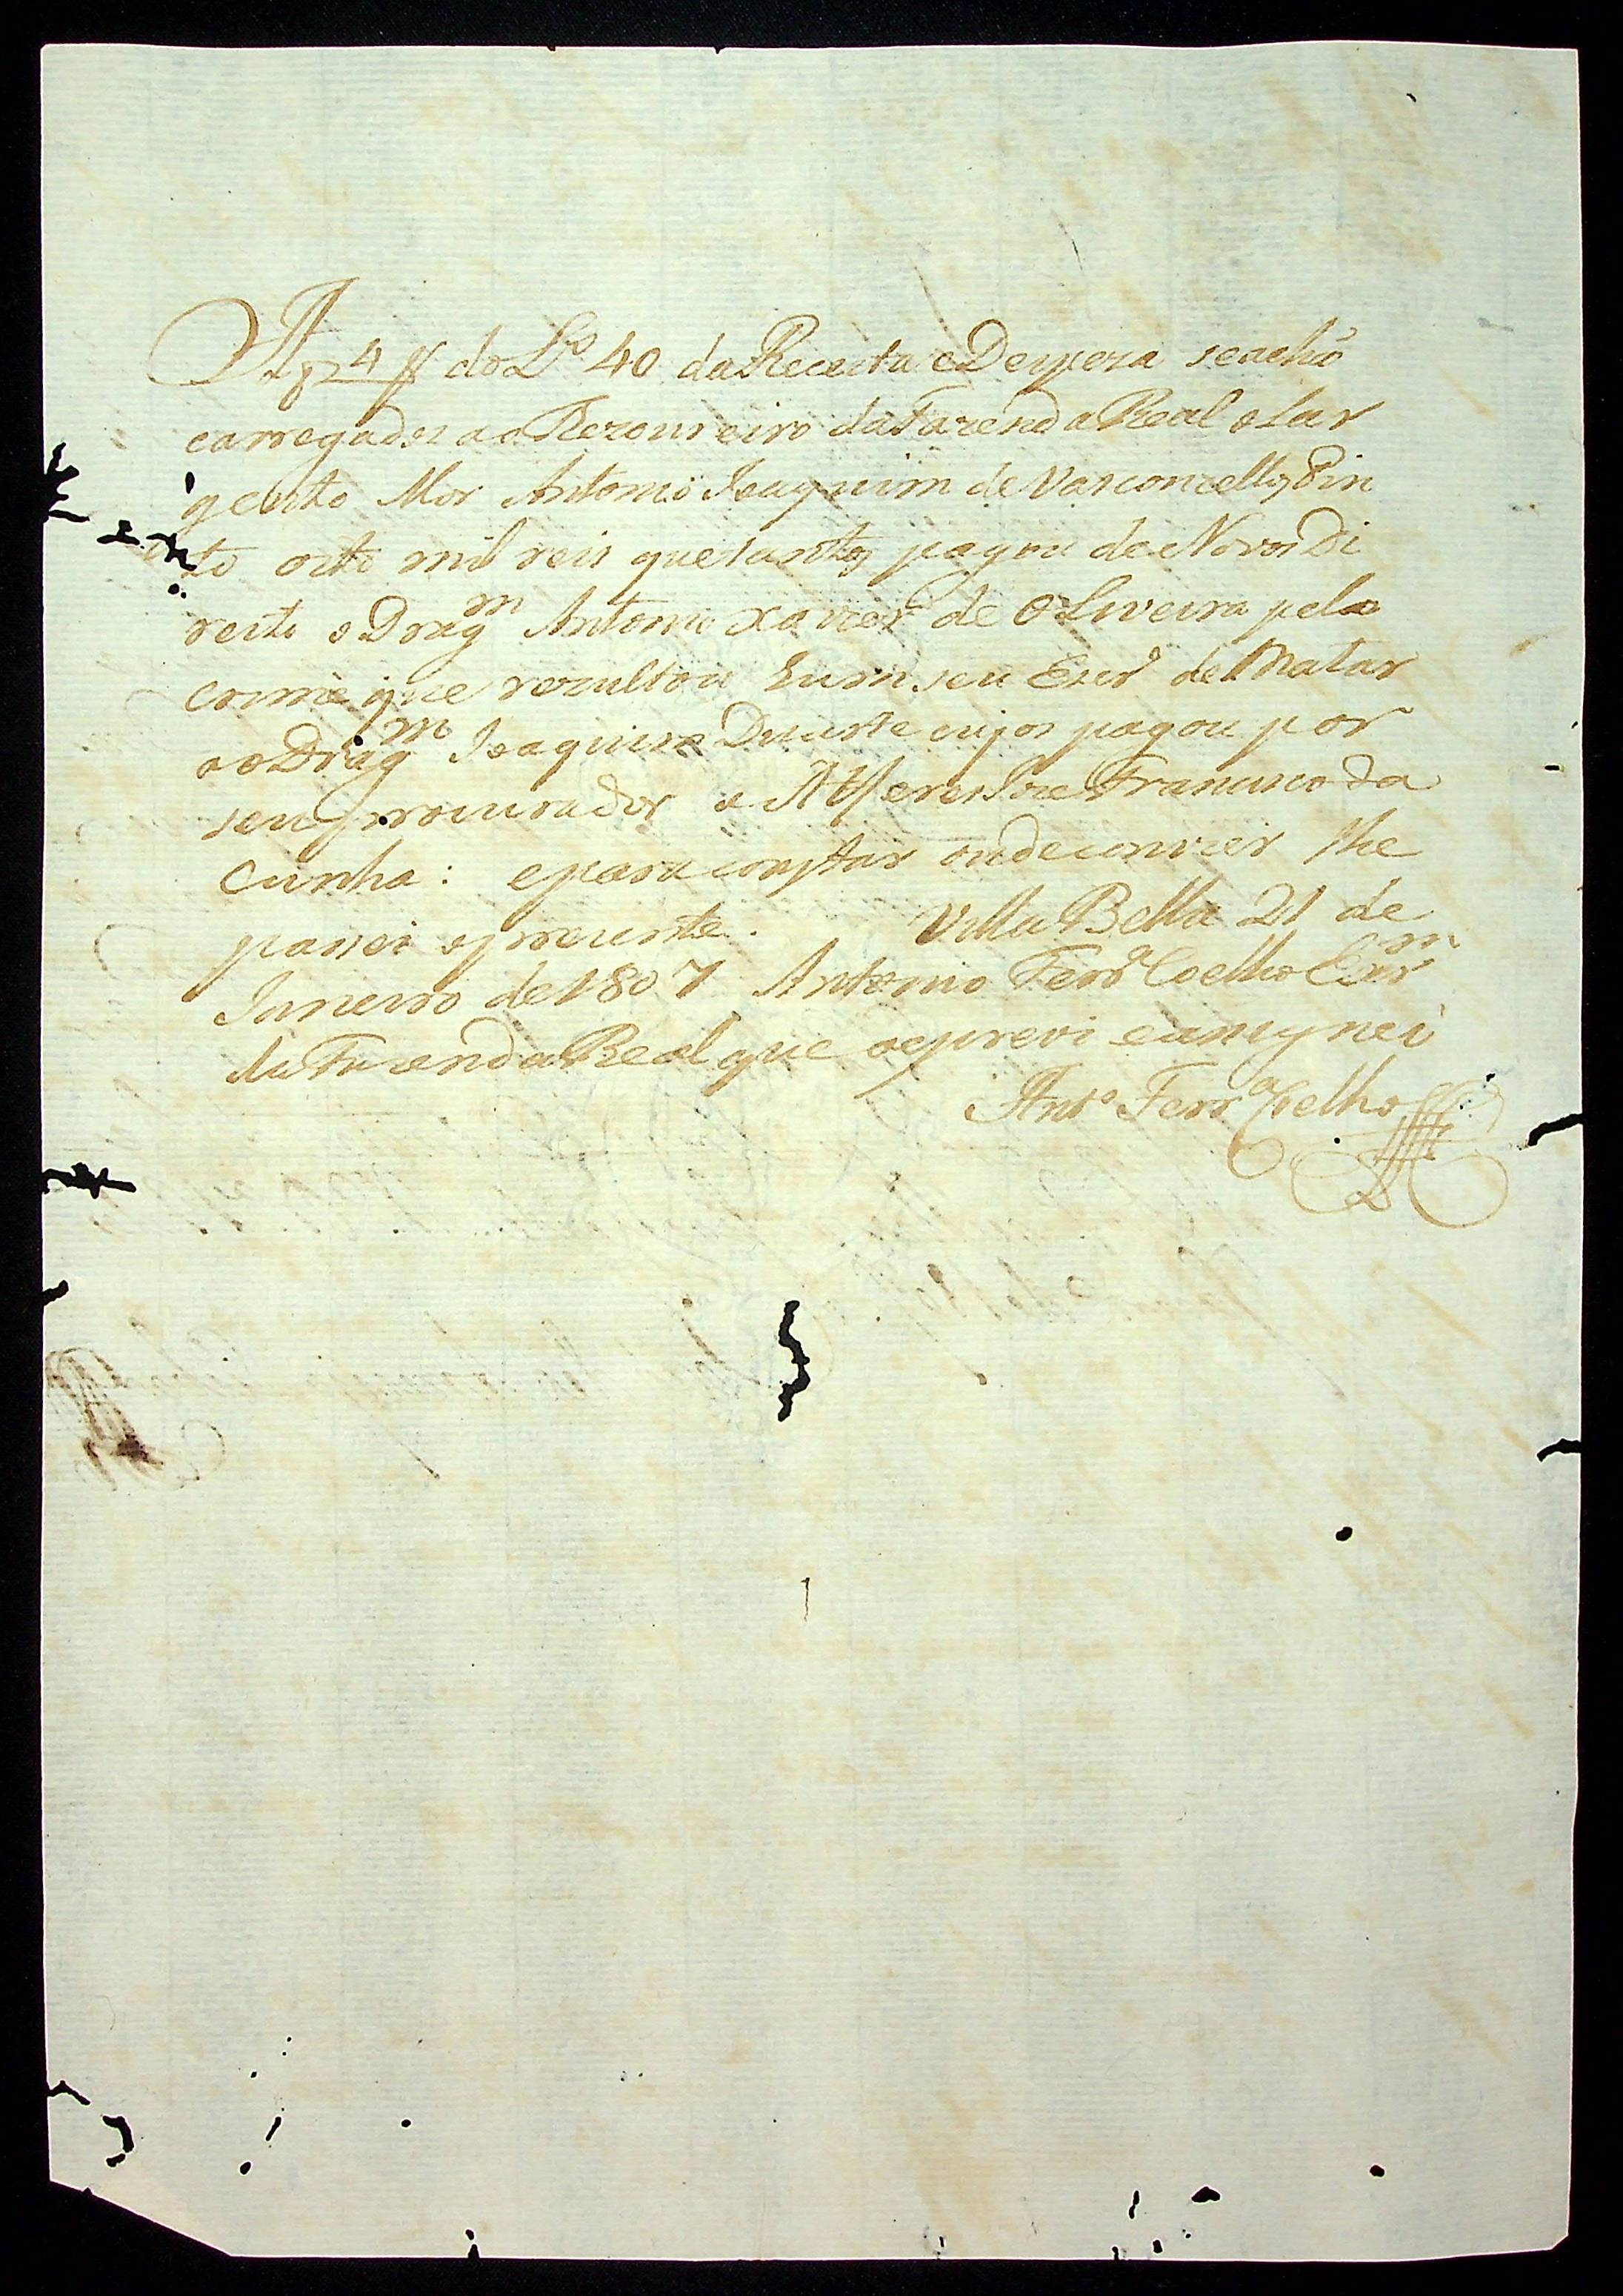 Af 4 do L.º 40 da Receita e Despeza se achão
carregados ao Thezoureiro da Fazenda Real o Sar
gento Mor Antonio Joaquim de Vasconcellos Pin
to oito mil reis que tantos pagou de Novos Di
reitos o Drag.m Antonio Xavier de OLiveira pelo
crime que rezultou hum seu Escr.º de Matar
ao Drag.m Joaquim Duarte cujos pagou por
seu procurador o Alferes Joze Francisco da
Cunha: e para constar onde convier lhe
passei o prezente. Villa Bella 21 de
Janeiro de 1807 Antonio Ferr.ª Coelho Escr.m
da Fazenda Real que o escrevi e assignei
Ant.º Ferr.ª Coelho